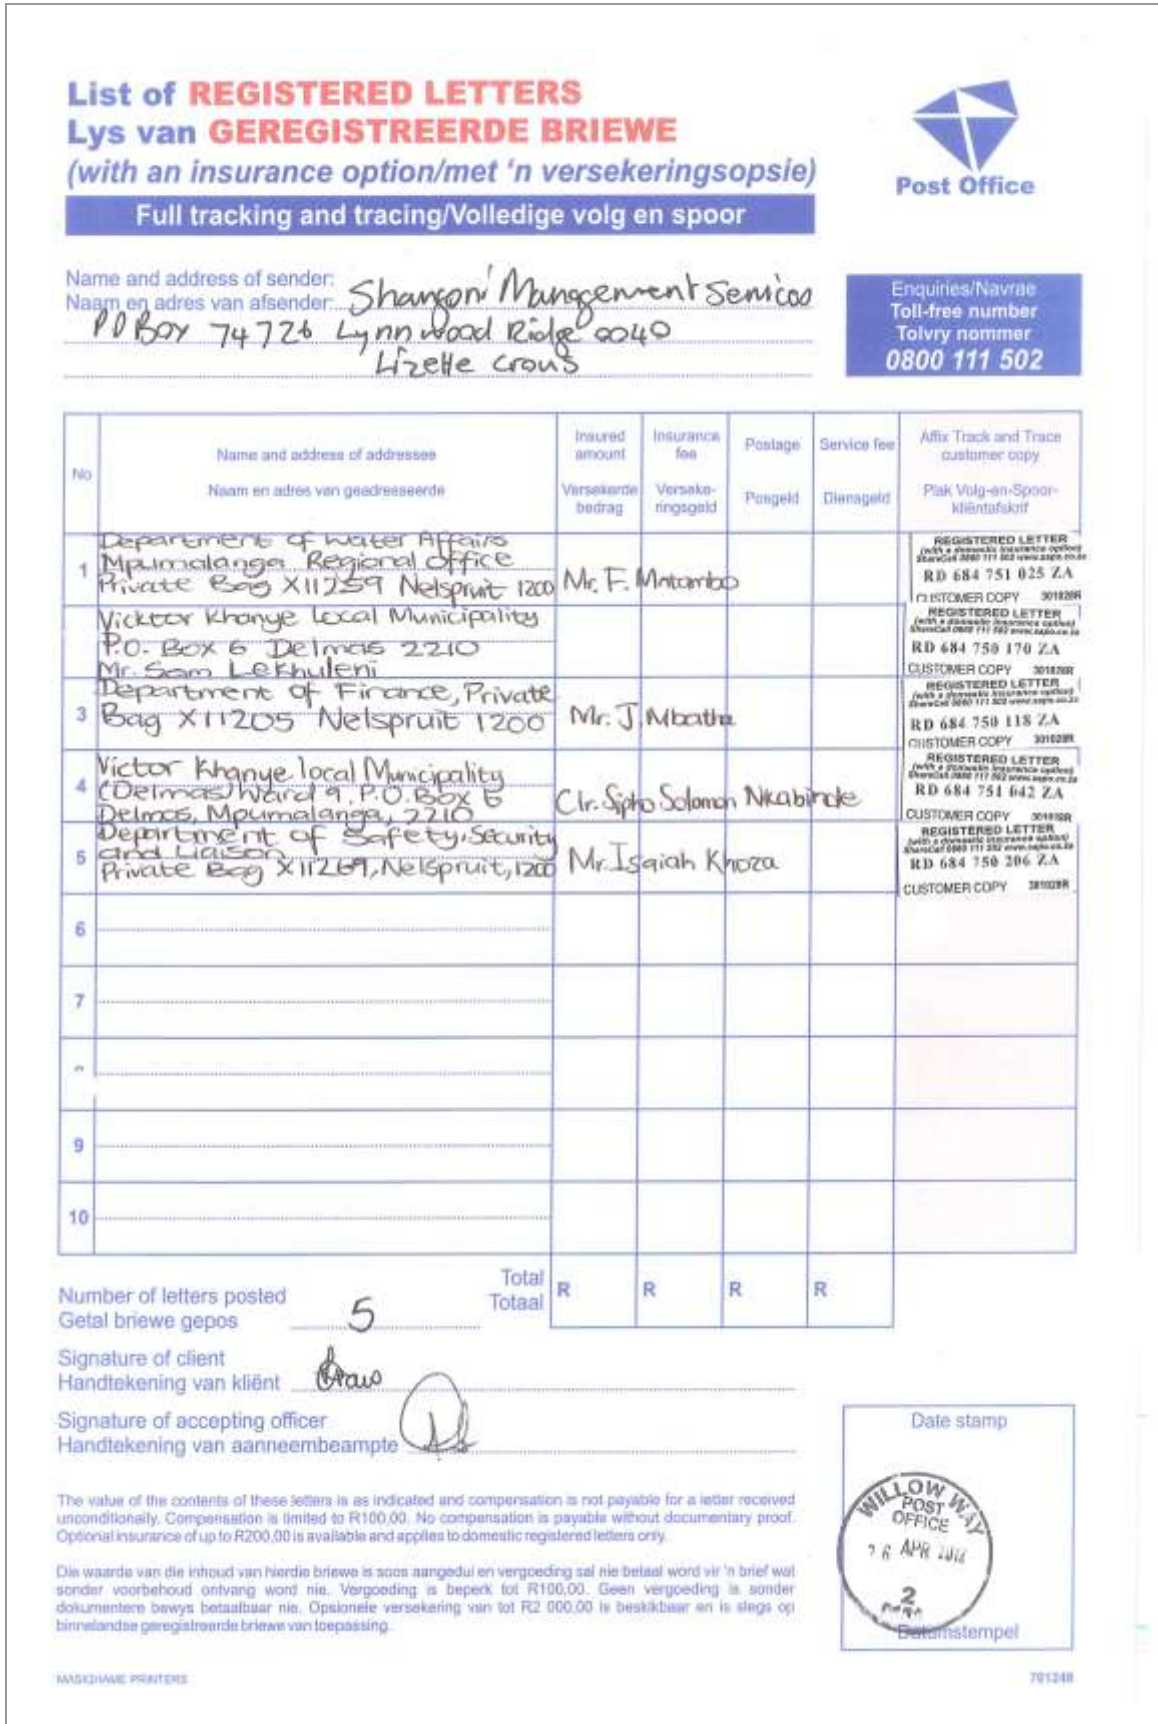 List of REGISTERED LETTERS
Lys van GEREGISTREERDE BRIEWE
(with an insurance option/met 'n versekeringsopsie)
Full tracking and tracing/Volledige volg en spoor
Post Office
Name and address of sender:
Naam en adres van afsender: Shangoni Management Services
PO Box 74726 Lynnwood Ridge 0040
Lizette Crous
Enquiries/Navrae
Toll-free number
Tolvry nommer
0800 111 502
No
Name and address of addressee
Naam en adres van geadresseerde
Insured amount
Versekerde bedrag
Insurance fee
Verseke-ringsgeld
Postage
Posgeld
Service fee
Diensgeld
Affix Track and Trace customer copy
Plak Volg-en-Spoor-kliëntafskrif
1
Department of Water Affairs
Mpumalanga Regional Office
Private Bag X11259 Nelspruit 1200 Mr. F. Mntambo
REGISTERED LETTER
(with a domestic insurance option)
ShareCall 0860 111 502 www.sapo.co.za
RD 684 751 025 ZA
CUSTOMER COPY 301028R
Vicktor Khanye Local Municipality
P.O. Box 6 Delmas 2210
Mr. Sam Lekhuleni
REGISTERED LETTER
(with a domestic insurance option)
ShareCall 0860 111 502 www.sapo.co.za
RD 684 750 170 ZA
CUSTOMER COPY 301028R
3
Department of Finance, Private
Bag X11205 Nelspruit 1200 Mr. J. Mbatha
REGISTERED LETTER
(with a domestic insurance option)
ShareCall 0860 111 502 www.sapo.co.za
RD 684 750 118 ZA
CUSTOMER COPY 301028R
4
Victor Khanye local Municipality
(Delmas) Ward 9, P.O. Box 6
Delmas, Mpumalanga, 2210
Clr. Sipho Solomon Nkabinde
REGISTERED LETTER
(with a domestic insurance option)
ShareCall 0860 111 502 www.sapo.co.za
RD 684 751 042 ZA
CUSTOMER COPY 301028R
5
Department of Safety, Security
and Liaison
Private Bag X11269, Nelspruit, 1200 Mr. Isaiah Khoza
REGISTERED LETTER
(with a domestic insurance option)
ShareCall 0860 111 502 www.sapo.co.za
RD 684 750 206 ZA
CUSTOMER COPY 301028R
6
7
9
10
Total
Totaal
R R R R
Number of letters posted
Getal briewe gepos 5
Signature of client
Handtekening van kliënt
Signature of accepting officer
Handtekening van aanneembeampte
The value of the contents of these letters is as indicated and compensation is not payable for a letter received
unconditionally. Compensation is limited to R100,00. No compensation is payable without documentary proof.
Optional insurance of up to R200,00 is available and applies to domestic registered letters only.
Die waarde van die inhoud van hierdie briewe is soos aangedui en vergoeding sal nie betaal word vir 'n brief wat
sonder voorbehoud ontvang word nie. Vergoeding is beperk tot R100,00. Geen vergoeding is sonder
dokumentere bewys betaalbaar nie. Opsionele versekering van tot R2 000,00 is beskikbaar en is slegs op
binnelandse geregistreerde briewe van toepassing.
Date stamp
WILLOW WAY
POST
OFFICE
APR
2
Datumstempel
701248